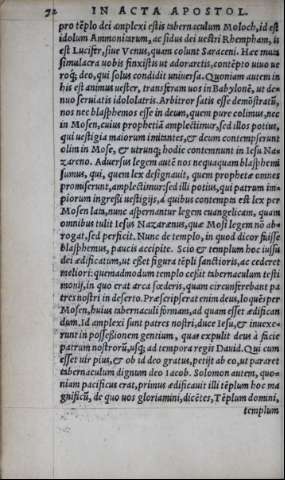 72 IN ACTA APOSTOL.
pro tẽplo dei amplexi estis tabernaculum Moloch, id est
idolum Ammonitarum, ac sidus dei uestri Rhempham, is
est Lucifer, siue Venus, quam colunt Saraceni. Hæc muta
simulacra uobis finxistis ut adoraretis, contẽpto uiuo ue
roq; deo, qui solus condidit uniuersa. Quoniam autem in
his est animus uester, transferam uos in Babylonẽ, ut de-
nuo seruiatis idololatris. Arbitror satis esse demõstratũ,
nos nec blasphemos esse in deum, quem pure colimus, nec
in Mosen, cuius prophetiã amplectimur, sed illos potius,
qui uestigia maiorum imitantes, & deum contempserunt
olim in Mose, & utrunq; hodie contemnunt in Iesu Na-
zareno. Aduersus legem autẽ nos nequaquam blasphemi
sumus, qui, quem lex designauit, quem prophetæ omnes
promiserunt, amplectimur: sed illi potius, qui patrum im-
piorum ingressi uestigijs, à quibus contempta est lex per
Mosen lata, nunc aspernantur legem euangelicam, quam
omnibus tulit Iesus Nazarenus, quæ Mosi legem nõ ab-
rogat, sed perficit. Nunc de templo, in quod dicor fuisse
blasphemus, paucis accipite. Scio & templum hoc iussu
dei ædificatum, ut esset figura tẽpli sanctioris, ac cederet
meliori: quemadmodum templo cessit tabernaculum testi
monij, in quo erat arca fœderis, quam circunferebant pa
tres nostri in deserto. Præscripserat enim deus, loquẽs per
Mosen, huius tabernaculi formam, ad quam esset ædifican
dum. Id amplexi sunt patres nostri, duce Iesu, & inuexe-
runt in possessionem gentium, quas expulit deus à facie
patrum nostrorũ, usq; ad tempora regis Dauid. Qui cum
esset uir pius, & ob id deo gratus, petijt ab eo, ut pararet
tabernaculum dignum deo Iacob. Solomon autem, quo-
niam pacificus erat, primus ædificauit illi tẽplum hoc ma
gnificũ, de quo uos gloriamini, dicẽtes, Tẽplum domini,
templum